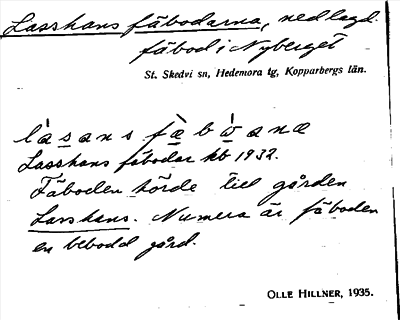 Lasshans fäbodarna, nedlagd
fäbod i Nyberget
St. Skedvi sn, Hedemora tg, Kopparbergs län.
Lasshans fäbodar kb 1932.
Fäboden hörde till gården
Larshans. Numera är fäboden
en bebodd gård.
OLLE HILLNER, 1935.